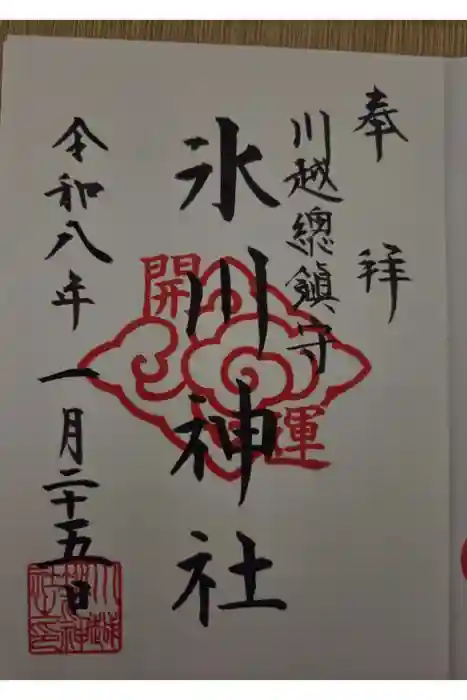 奉拝
川越總鎮守
氷川神社
開運
令和八年一月二十五日
川越氷川神社印